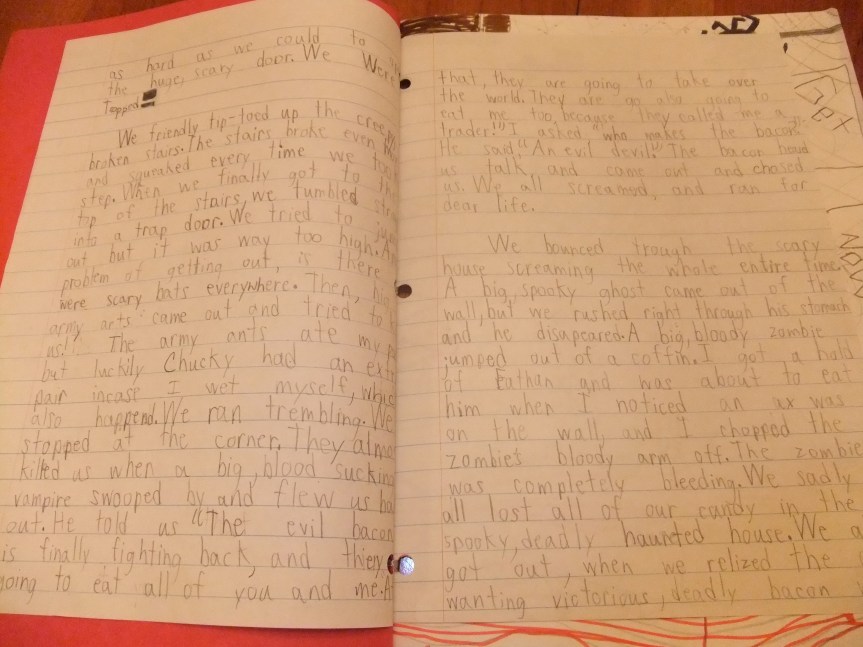 as hard as we could to
the huge, scary door. We Wer
Tapped
We friendly tip-toed up the cree
broken stairs. The stairs broke even
and squeaked every time we too
step. When we finally got to th
top of the stairs, we tumbled
into a trap door. We tried to
out but it was way too high. A
problem of getting out, is there
were scary bats everywhere. Then,
army ants came out and tried to
us!! The army ants ate my
but luckily Chucky had an ext
pair incase I wet myself, whic
also happend. We ran trembling. We
stopped at the corner. They almo
killed us when a big, blood suckin
vampire swooped by and flew us ba
out. He told us "The evil bacon
is finally fighting back, and thiery
going to eat all of you and me. A
that, they are going to take over
the world. They are go also going to
eat me too, because they called me a
trader!" I asked "who makes the bacon"
He said, "An evil devil." The bacon heard
us talk, and came out and chased
us. We all screamed, and ran for
dear life.
We bounced trough the scary
house screaming the whole entire time.
A big, spooky ghost came out of the
wall, but we rushed right through his stomach
and he disapeared. A big, bloody zombie
jumped out of a coffin. I got a hold
of Eathan and was about to eat
him when I noticed an ax was
on the wall, and I chopped the
zombie's bloody arm off. The zombie
was completely bleeding. We sadly
all lost all of our candy in the
spooky, deadly haunted house. We a
got out, when we relized the
wanting victorious, deadly bacon
Get
Now